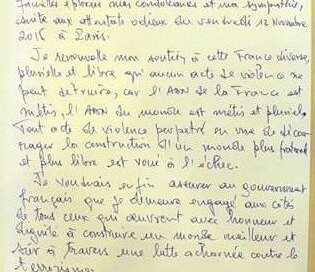 familles éplorées mes condoléances et ma sympathie,
suite aux attentats odieux du vendredi 13 Novembre
2015 à Paris.
Je renouvelle mon soutien à cette France diverse,
plurielle et libre qu'aucun acte de violence ne
peut détruire, car l'ADN de la France est
métis, l'ADN du monde est métis et pluriel.
Tout acte de violence perpétré en vue de décou-
rager la construction d'un monde plus fraternel
et plus libre est voué à l'échec.
Je voudrais enfin assurer au gouvernement
français que je demeure engagé aux côtés
de tous ceux qui œuvrent avec honneur et
dignité à construire un monde meilleur et
sûr à travers une lutte acharnée contre le
terrorisme.